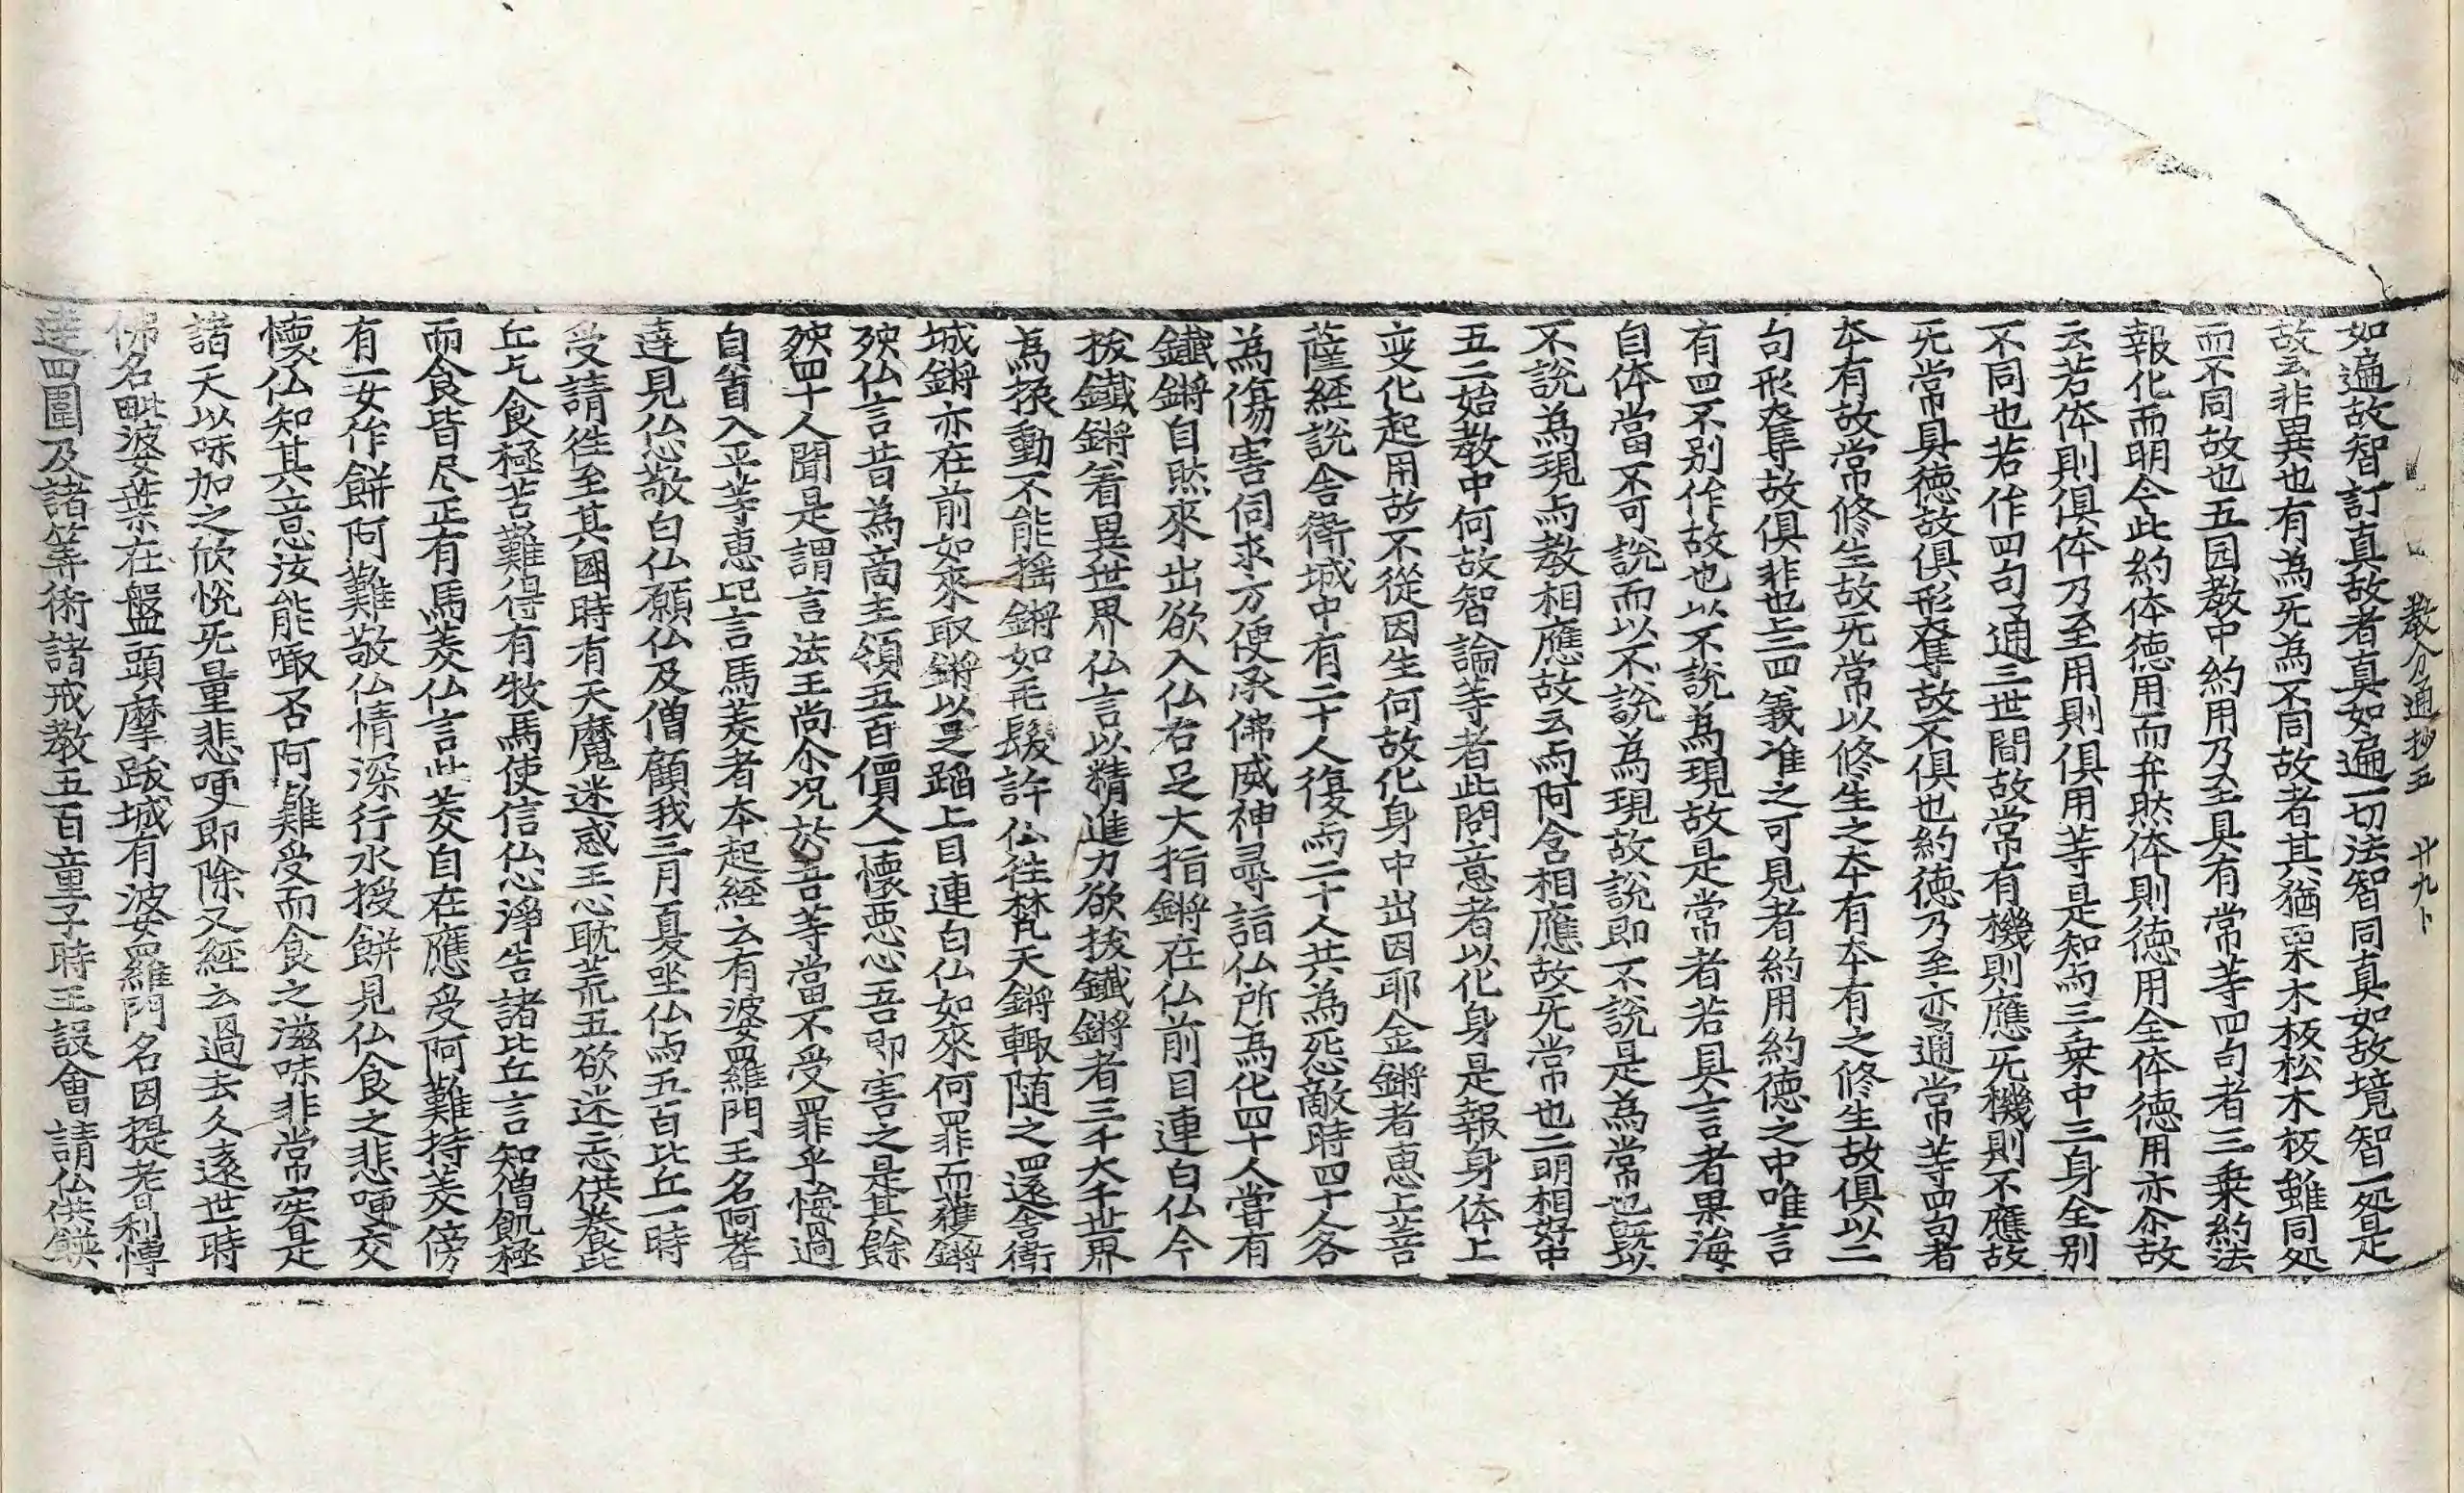 教分通抄五　卄九卜
如遍故智訂真故者真如遍一切法智同真如故境智一処是
故云非異也有為旡為不同故者其猶栗木板松木板雖同処
而不同故也五囩教中約用乃至具有常等四句者三乗約法
報化而明今此約体徳用而弁然体則徳用全体徳用亦尒故
云若体則俱体乃至用則俱用等是知而三乗中三身全別
不同也若作四句通三世間故常有機則應旡機則不應故
旡常具徳故俱形奪故不俱也約徳乃至亦通常等四句者
夲有故常修生故旡常以修生之夲有夲有之修生故俱以二
句形奪故俱非也上三四義准之可見者約用約徳之中唯言
有四不别作故也以不説為現故是常者若具言者果海
自体當不可説而以不説為現故説即不説是為常也既
不説為現而教相應故云而阿含相應故旡常也二明相好中
五二始教中何故智論等者此問意者以化身是報身体上
变化起用故不從因生何故化身中出因耶金鏘者恵上菩
薩經説舎衛城中有二十人復而二十人共為怨敵時四十人各
為傷害伺求方便承佛威神尋詣仏所為化四十人當有
鐵鏘自然來出欲入仏右足大指鏘在仏前目連白仏今
拔鐵鏘着異世界仏言以精進力欲拔鐵鏘者三千大千世界
為振動不能揺鏘如毛髮許仏徃梵天鏘輙随之還舎衛
城鏘亦在前如來取鏘以足蹈上目連白仏如來何罪而獲鏘
殃仏言昔為啇主領五百價人一懷悪心吾即害之是其餘
殃四十人聞是謂言法王尚尒况於吾等當不受罪乎悔過
自首入平等恵

言馬麦者夲起経云有婆羅門王名阿耆
達見仏心敬白仏願仏及僧顧我三月夏坐仏而五百比丘一時
受請徃至其國時有天魔迷惑王心耽荒五欲迷忘供養比
丘乞食極苦難得有牧馬使信仏心淨告諸比丘言知僧飢極
而食皆尽正有馬麦仏言此麦自在應受阿難持麦傍
有一女作餅阿難敬仏情深行水授餅見仏食之悲哽交
懷仏知其意汝能噉否阿難受而食之滋味非常寔是
諸天以味加之欣悦旡量悲哽即除又經云過去久遠世時
佛名毗婆葉在盤頭摩跋城有婆羅門名因提耆利愽
達四圍及諸筭術諸戒教五百童子時王設會請仏供饌